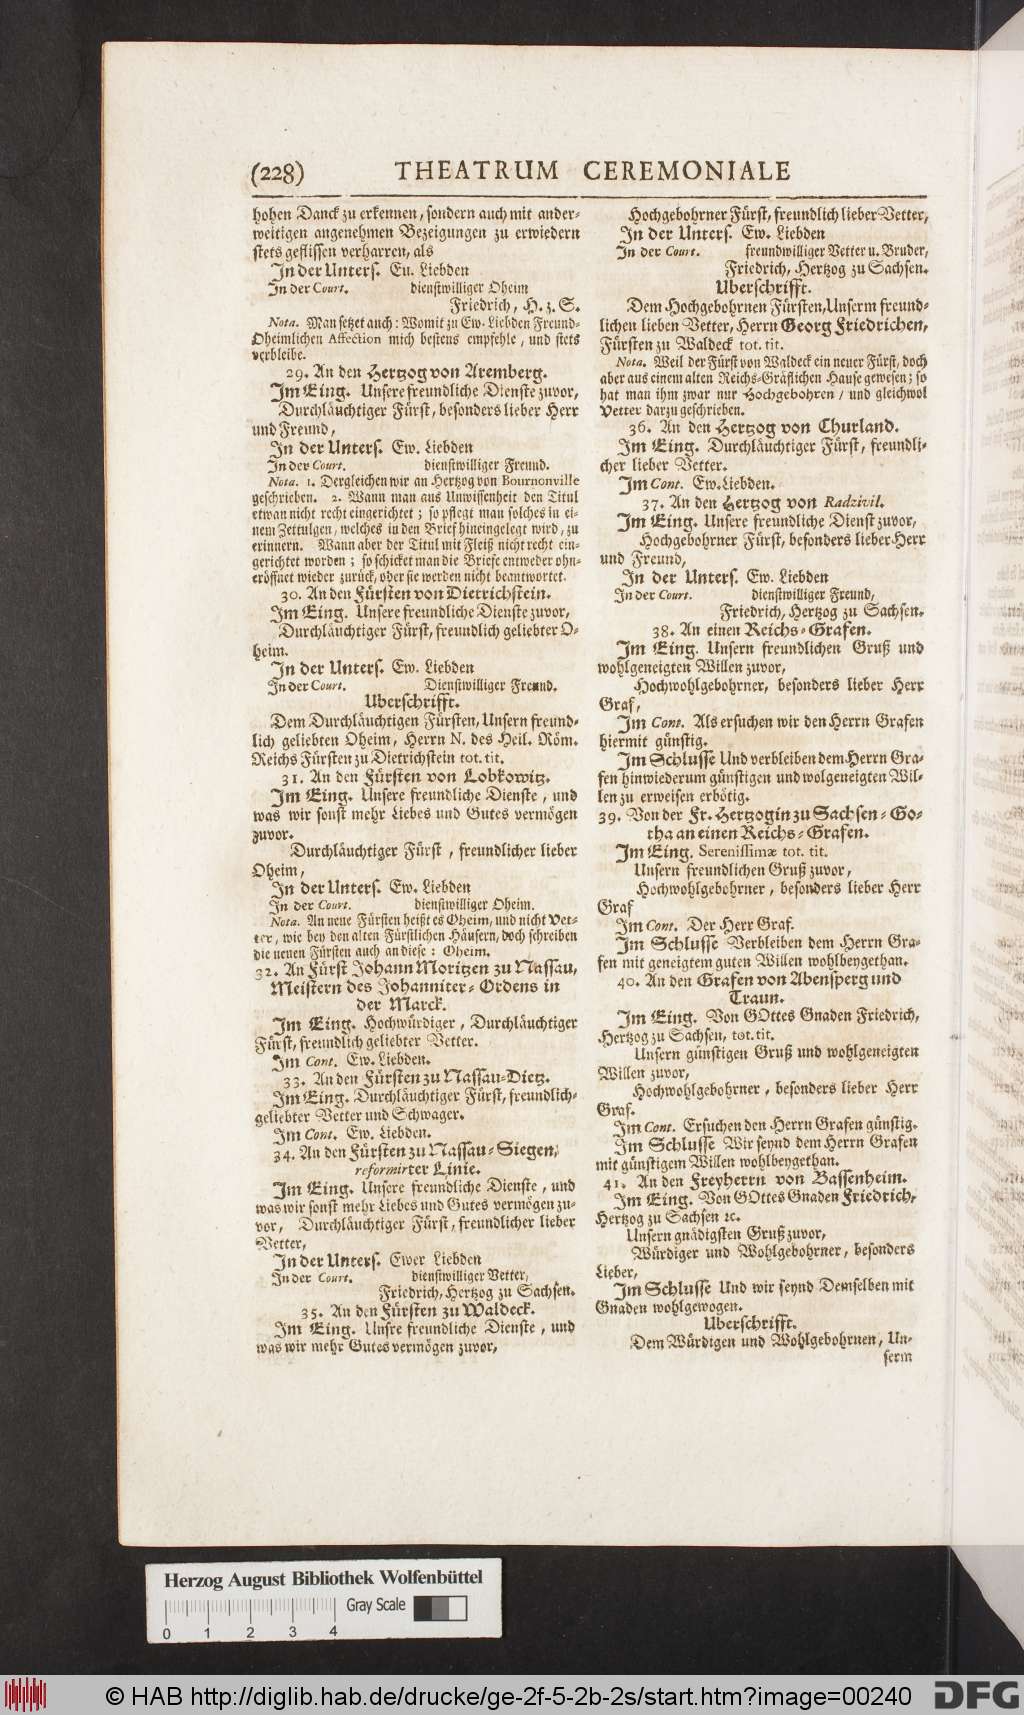 (228) THEATRUM CEREMONIALE
hohen Danck zu erkennen, sondern auch mit ander-
weitigen angenehmen Bezeigungen zu erwiedern
stets geflissen verharren, als
In der Unters. Eu. Liebden
In der Court. dienstwilliger Oheim
Friedrich, H. z. S.
Nota. Man setzet auch: Womit zu Ew. Liebden Freund-
Oheimlichen Affection mich bestens empfehle, und stets
verbleibe.
29. An den Hertzog von Aremberg.
Im Eing. Unsere freundliche Dienste zuvor,
Durchläuchtiger Fürst, besonders lieber Herr
und Freund,
In der Unters. Ew. Liebden
In der Court. dienstwilliger Freund.
Nota. 1. Dergleichen wir an Hertzog von Bournonville
geschrieben. 2. Wann man aus Unwissenheit den Titul
etwan nicht recht eingerichtet; so pflegt man solches in ei-
nem Zettulgen, welches in den Brief hineingelegt wird, zu
erinnern. Wann aber der Titul mit Fleiß nicht recht ein-
gerichtet worden; so schicket man die Briefe entweder ohn-
eröffnet wieder zurück, oder sie werden nicht beantwortet.
30. An den Fürsten von Dietrichstein.
Im Eing. Unsere freundliche Dienste zuvor,
Durchläuchtiger Fürst, freundlich geliebter O-
heim.
In der Unters. Ew. Liebden
In der Court. Dienstwilliger Freund.
Uberschrifft.
Dem Durchläuchtigen Fürsten, Unsern freund-
lich geliebten Oheim, Herrn N. des Heil. Röm.
Reichs Fürsten zu Dietrichstein tot. tit.
31. An den Fürsten von Lobkowitz.
Im Eing. Unsere freundliche Dienste, und
was wir sonst mehr Liebes und Gutes vermögen
zuvor.
Durchläuchtiger Fürst, freundlicher lieber
Oheim,
In der Unters. Ew. Liebden
In der Court. dienstwilliger Oheim.
Nota. An neue Fürsten heißt es Oheim, und nicht Vet-
ter, wie bey den alten Fürstlichen Häusern, doch schreiben
die neuen Fürsten auch an diese: Oheim.
32. An Fürst Johann Moritzen zu Nassau,
Meistern des Johanniter-Ordens in
der Marck.
Im Eing. Hochwürdiger, Durchläuchtiger
Fürst, freundlich geliebter Vetter.
Im Cont. Ew. Liebden.
33. An den Fürsten zu Nassau-Dietz.
Im Eing. Durchläuchtiger Fürst, freundlich-
geliebter Vetter und Schwager.
Im Cont. Ew. Liebden.
34. An den Fürsten zu Nassau-Siegen,
reformirter Linie.
Im Eing. Unsere freundliche Dienste, und
was wir sonst mehr Liebes und Gutes vermögen zu-
vor, Durchläuchtiger Fürst, freundlicher lieber
Vetter,
In der Unters. Ewer Liebden
In der Court. dienstwilliger Vetter,
Friedrich, Hertzog zu Sachsen.
35. An den Fürsten zu Waldeck.
Im Eing. Unsre freundliche Dienste, und
was wir mehr Gutes vermögen zuvor,
Hochgebohrner Fürst, freundlich lieber Vetter,
In der Unters. Ew. Liebden
In der Court. freundwilliger Vetter u. Bruder,
Friedrich, Hertzog zu Sachsen.
Uberschrifft.
Dem Hochgebohrnen Fürsten, Unserm freund-
lichen lieben Vetter, Herrn Georg Friedrichen,
Fürsten zu Waldeck tot. tit.
Nota. Weil der Fürst von Waldeck ein neuer Fürst, doch
aber aus einem alten Reichs-Gräflichen Hause gewesen; so
hat man ihm zwar nur Hochgebohren / und gleichwol
Vetter darzu geschrieben.
36. An den Hertzog von Churland.
Im Eing. Durchläuchtiger Fürst, freundli-
cher lieber Vetter.
Im Cont. Ew. Liebden.
37. An den Hertzog von Radzivil.
Im Eing. Unsere freundliche Dienst zuvor,
Hochgebohrner Fürst, besonders lieber Herr
und Freund,
In der Unters. Ew. Liebden
In der Court. dienstwilliger Freund,
Friedrich, Hertzog zu Sachsen.
38. An einen Reichs-Grafen.
Im Eing. Unsern freundlichen Gruß und
wohlgeneigten Willen zuvor,
Hochwohlgebohrner, besonders lieber Herr
Graf,
Im Cont. Als ersuchen wir den Herrn Grafen
hiermit günstig.
Im Schlusse Und verbleiben dem Herrn Gra-
fen hinwiederum günstigen und wolgeneigten Wil-
len zu erweisen erbötig.
39. Von der Fr. Hertzogin zu Sachsen-Go-
tha an einen Reichs-Grafen.
Im Eing. Serenissimæ tot. tit.
Unsern freundlichen Gruß zuvor,
Hochwohlgebohrner, besonders lieber Herr
Graf
Im Cont. Der Herr Graf.
Im Schlusse Verbleiben dem Herrn Gra-
fen mit geneigtem guten Willen wohlbeygethan.
40. An den Grafen von Abensperg und
Traun.
Im Eing. Von GOttes Gnaden Friedrich,
Hertzog zu Sachsen, tot. tit.
Unsern günstigen Gruß und wohlgeneigten
Willen zuvor,
Hochwohlgebohrner, besonders lieber Herr
Graf.
Im Cont. Ersuchen den Herrn Grafen günstig.
Im Schlusse Wir seynd dem Herrn Grafen
mit günstigem Willen wohlbeygethan.
41. An den Freyherrn von Bassenheim.
Im Eing. Von GOttes Gnaden Friedrich,
Hertzog zu Sachsen ꝛc.
Unsern gnädigsten Gruß zuvor,
Würdiger und Wohlgebohrner, besonders
Lieber,
Im Schlusse Und wir seynd Demselben mit
Gnaden wohlgewogen.
Uberschrifft.
Dem Würdigen und Wohlgebohrnen, Un-
serm
Herzog August Bibliothek Wolfenbüttel
Gray Scale
0 1 2 3 4
© HAB http://diglib.hab.de/drucke/ge-2f-5-2b-2s/start.htm?image=00240 DFG